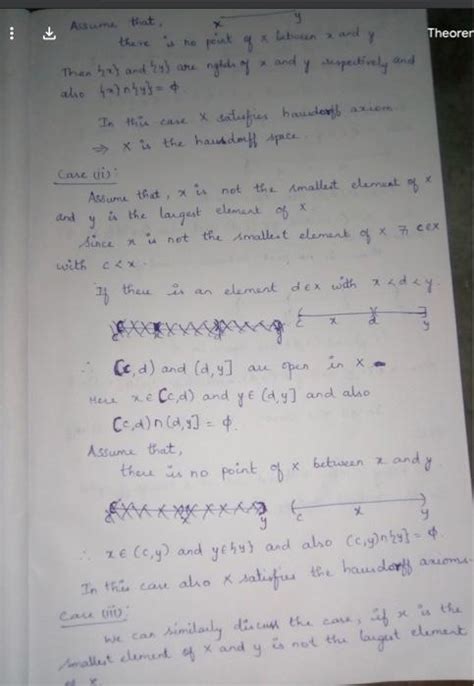 Assume that,
x y
Theorem
there is no point of x between x and y
Then {x} and {y} are nghds of x and y respectively and
also {x} ∩ {y} = ϕ.
In this case X satisfies hausdorff axiom
⇒ X is the hausdorff space.
Case (ii):
Assume that, x is not the smallest element of X
and y is the largest element of X
Since x is not the smallest element of X ∃ c∈X
with c < x.
If there is an element d∈X with x < d < y.
c x d y
∴ (c, d) and (d, y] are open in X
Here x ∈ (c, d) and y ∈ (d, y] and also
(c, d) ∩ (d, y] = ϕ.
Assume that,
there is no point of X between x and y.
c x y
∴ x ∈ (c, y) and y ∈ {y} and also (c, y) ∩ {y} = ϕ.
In this case also X satisfies the hausdorff axioms.
Case (iii):
We can similarly discuss the case, if x is the
smallest element of X and y is not the largest element
of X.